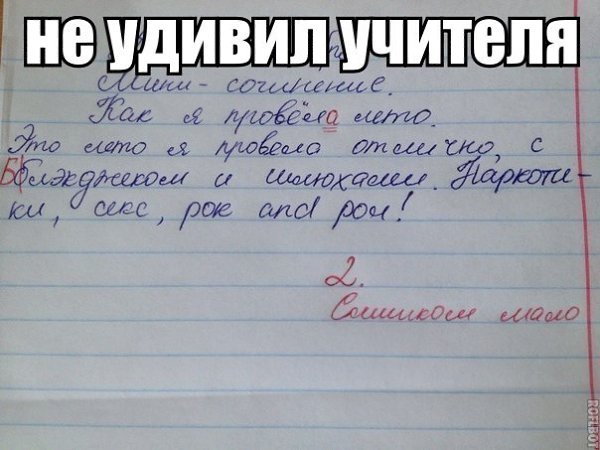 не удивил учителя
Мини-сочинение.
Как я провёла лето.
Это лето я провела отлично, с
Б блэкджеком и шлюхами. Наркоти-
ки, секс, рок and рол!
2.
Слишком мало
ROFLBOT